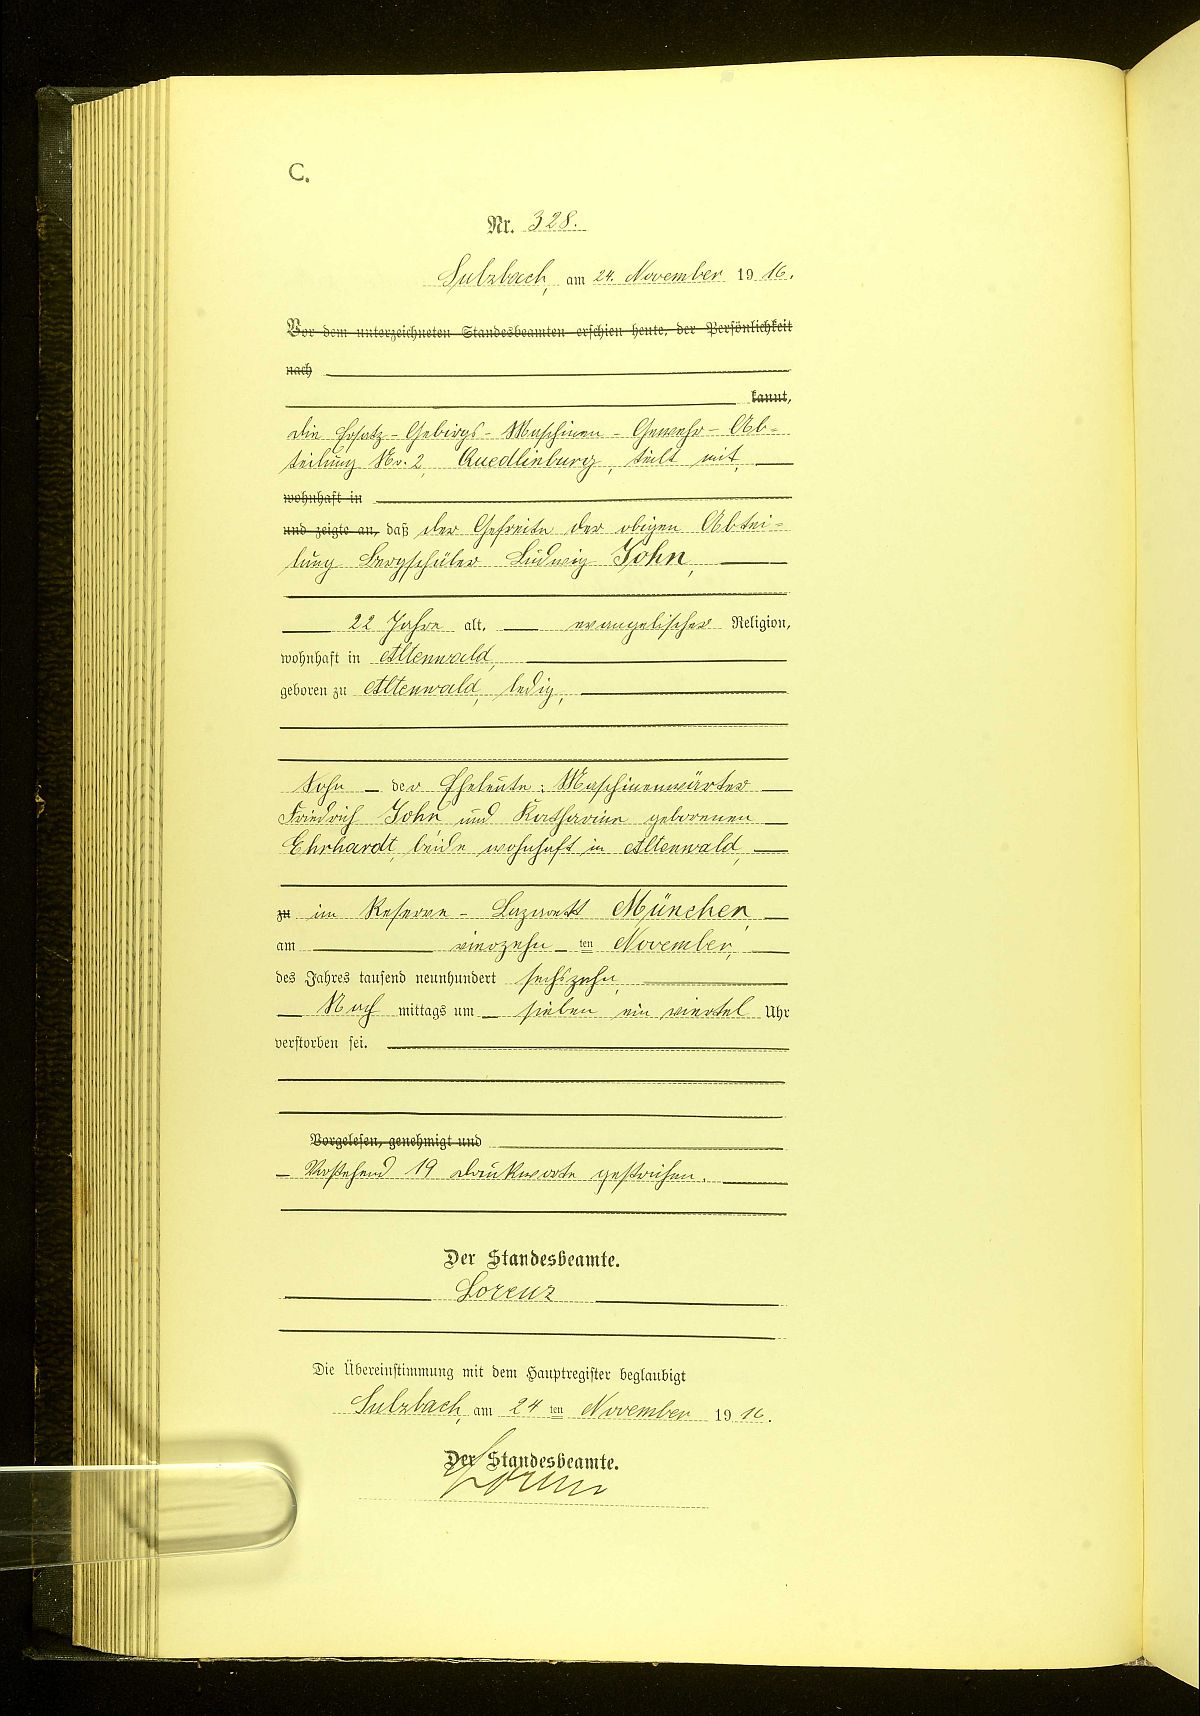 C.
Nr. 328.
Sulzbach, am 24. November 1916.
Vor dem unterzeichneten Standesbeamten erschien heute, der Persönlichkeit
nach
kannt,
die Ersatz-Gebirgs-Maschinen-Gewehr-Ab-
teilung Nr. 2, Quedlinburg, teilt mit,
wohnhaft in
und zeigte an, daß der Gefreite der obigen Abtei-
lung Bergschüler Ludwig John,
22 Jahre alt, evangelischer Religion,
wohnhaft in Altenwald,
geboren zu Altenwald, ledig,
Sohn der Eheleute: Maschinenwärter
Friedrich John und Katharina geborenen
Ehrhardt, beide wohnhaft in Altenwald,
zu im Reserve-Lazarett München,
am vierzehn ten November,
des Jahres tausend neunhundert sechszehn,
Nach mittags um sieben ein viertel Uhr
verstorben sei.
Vorgelesen, genehmigt und
Vorstehend 19 Druckworte gestrichen.
Der Standesbeamte.
Lorenz
Die Übereinstimmung mit dem Hauptregister beglaubigt
Sulzbach, am 24 ten November 1916.
Der Standesbeamte.
Lorenz